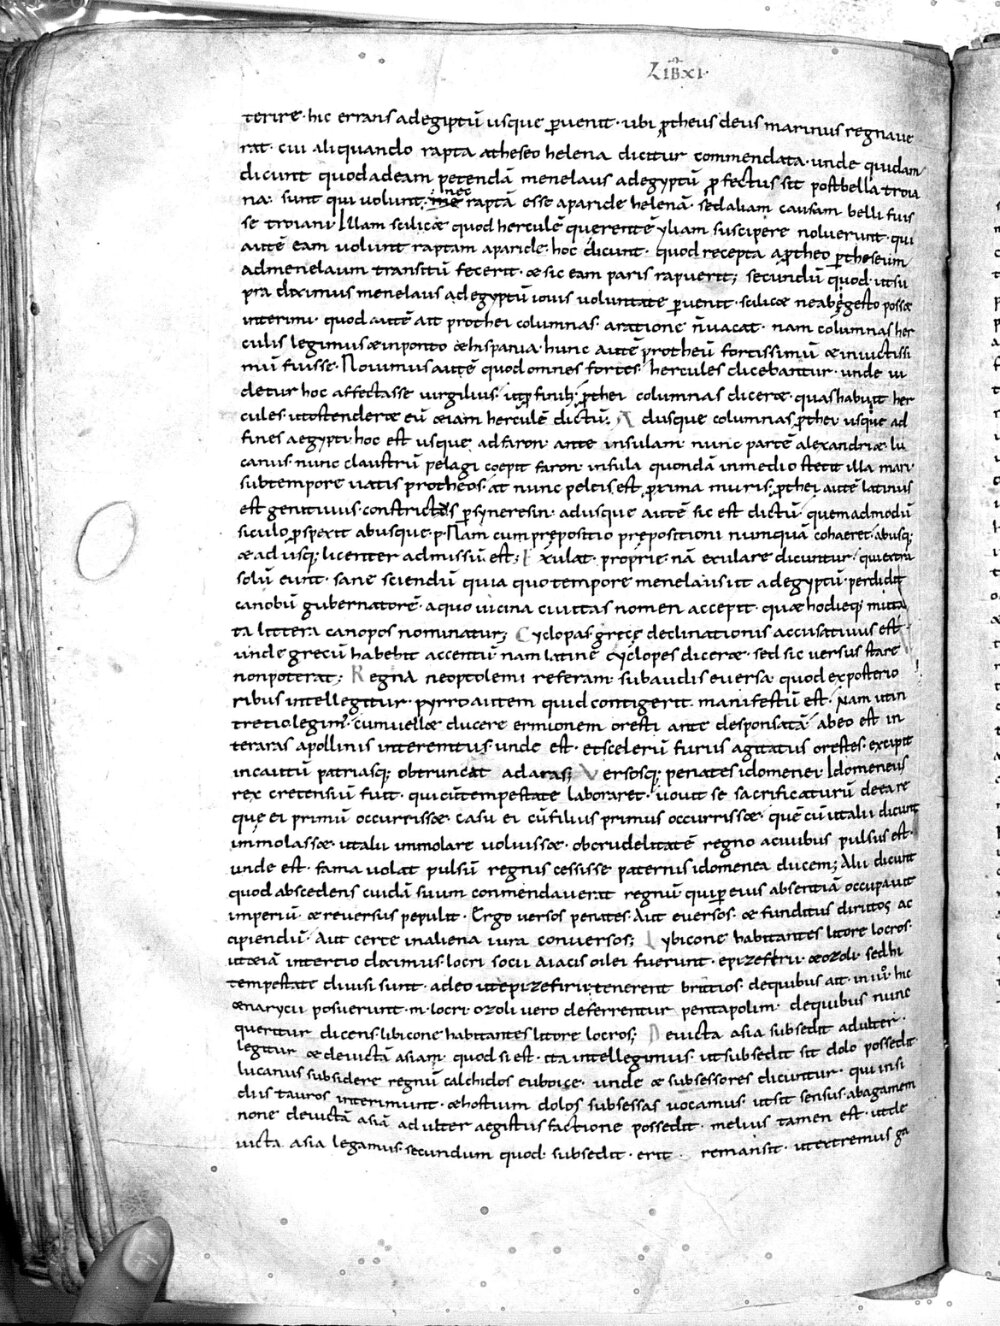 LIB XI.
terire· hic errans adegiptū usque ꝑuenit· ubi ꝓtheus deus marinus regnaue
rat· cui aliquando rapta atheseo helena dicitur commendata· unde quidam
dicunt quodadeam petendā menelaus adegyptū ꝓfectus sit postbella troia
na· sunt qui volunt nec raptā esse aparide helenā· sedaliam causam belli fuis
se troiani Illam scilicæ quod herculē querentē yliam suscipere noluerunt· qui
autē eam uolunt raptam aparide· hoc dicunt· quod recepta aꝓtheo ꝑtheseum
admenelaum transitū fecerit· æ sic eam paris rapuerit; secundū quod· utsu
pra diximus menelaus adegyptū iouis voluntate ꝑuenit· scilicæ neabęgesto possæ
interimi· quod autē ait prothei columnas· aratione n̄uacat· nam columnas her
culis legimus æinponto æhispania· hunc autē protheū fortissimū æinuictissi
mū fuisse· Nouimus autē quodomnes fortes· hercules dicebantur· unde ui
detur hoc affectasse uirgilius· ꝓthei columnas diceræ· quashabuit her
cules· utostenderæ eū æiam herculē dictū· Adusque columnas ꝓthei usque ad
fines aegypti hoc est usque adfaron· ante insulam nunc partē alexandriæ lu
canus· nunc claustrū pelagi coepit faron· insula quondā inmedio stetit illa mari
subtempore uatis protheos· at nunc peleis est ꝓxima muris· ꝓthei autē latinus
est genitiuus· constructus ꝑsyneresin· adusque autē sic est dictū· quemadmodū
siculo ꝓspexit abusque·p· Nam cum prepositio prepositioni nunquā cohaeret· abusq;
æ ad usq; licenter admissū est; Exulat· proprie· nā exulare dicuntur· quiextra
solū eunt· sane sciendū quia quo tempore menelaus iit adegyptū· perdidit
canobū gubernatorē· aquo uicina ciuitas nomen accepit· quæ hodieq; muta
ta littera canopos nominatur; Cyclopas gręce declinationis accusatiuus est·
unde grecū habebit accentū nam latine cyclopes diceræ· sed sic uersus stare
nonpoterat; Regna neoptolemi referam· subaudis euersa· quod exposterio
ribus intellegitur· pyrro autem quid contigerit manifestū est· Nam utin
tertio legim̄· cumuellæ ducere ermionem oresti ante desponsatā· abeo est in
teraras apollinis interemtus· unde est· etscelerū furiis agitatus orestes· excipit
incautū patriasq; obtruncat adaras; Versosq; penates idomenei· Idomeneus
rex cretensiū fuit· quicūtempestate laboraret· uouit se sacrificaturū deeare
que ei primū occurrissæ· casu ei cūfilius primus occurrissæ· quē cū utalii dicunt
immolassæ· utalii immolare voluissæ· obcrudelitatē regno aciuibus pulsus est·
unde est· fama uolat pulsū regnis cessisse paternis idomenea ducem; Alii dicunt
quod abscedens cuidā suum conmendauerat regnū· quiꝑ eius absentiā occupauit
imperiū· æ reuersus pepulit· Ergo uersos penates· Aut euersos· æ funditus dirutos ac
cipiendū· Aut certe inaliena iura conuersos; Lybicone habitantes litore locros·
utæiā intertio diximus· locri socii aiacis oilei fuerunt· epizefirii· æozoli· sedhi
tempestate diuisi sunt· adeo utepizefirii tenerent brittios· dequibus ait in iii° hic
ænarycii posuerunt·m· locri· ozoli uero deferrentur pentapolim· dequibus nunc
queritur dicens· libicone habitantes litore locros; Deuicta asia subsedit adulter·
legitur æ deuictā asiam· quod si est· ita intellegimus ut subsedit sit dolo possedit
lucanus subsidere regnū calchidos euboice· unde æ subsessores dicuntur· qui insi
diis tauros interimunt· æhostium dolos subsessas uocamus· utsit sensus· abagamem
none deuictā asiā adulter aegistus factione possedit· melius tamen est· utde
uicta asia legamus· secundum quod· subsedit· erit· remansit· utextremus ga